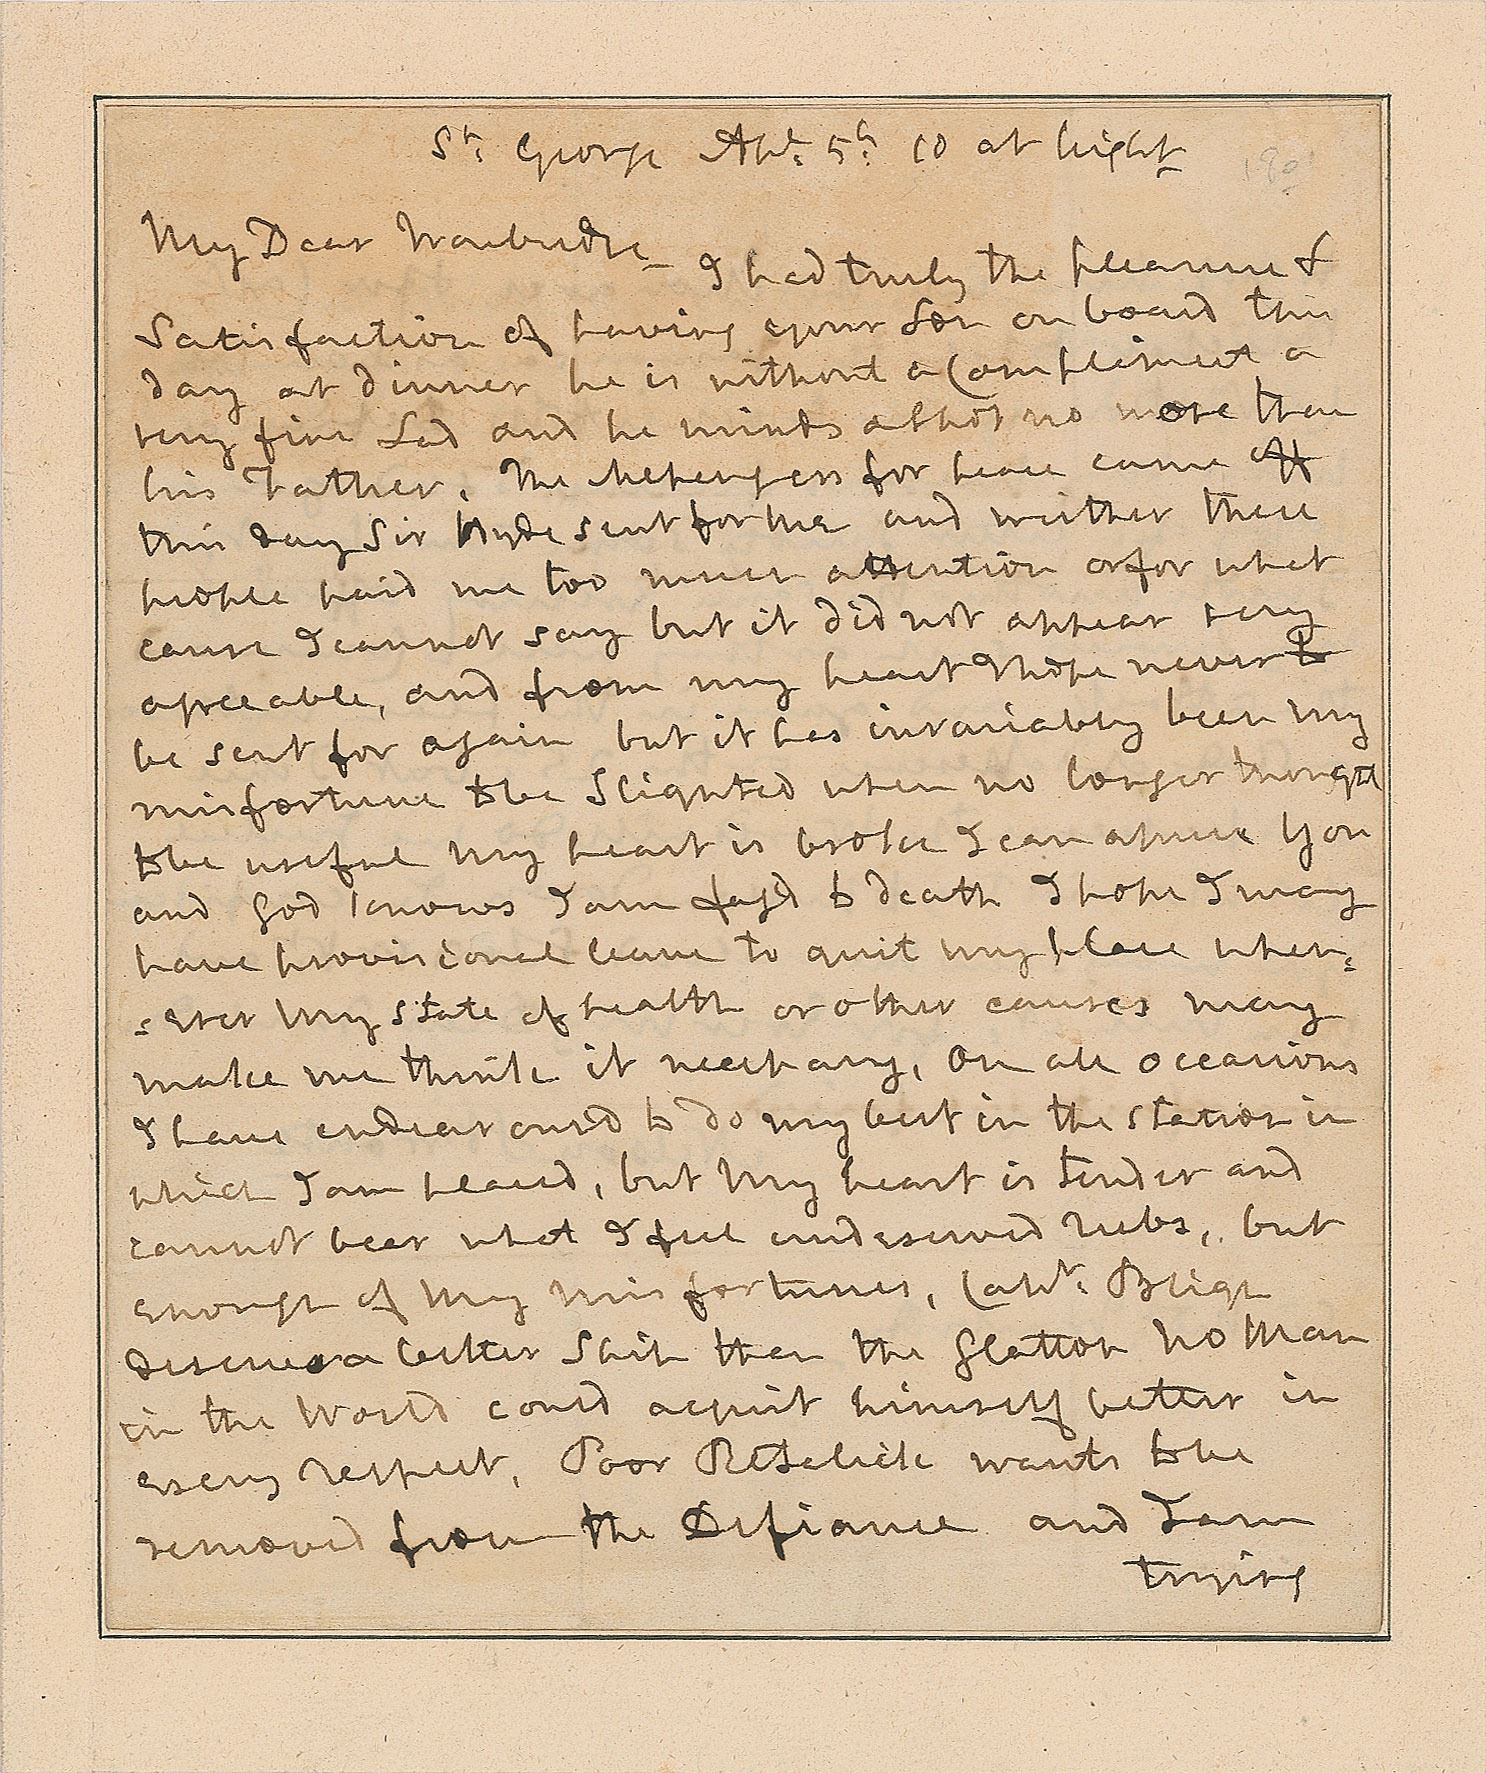 St: George Apl: 5h: 10 at night
My Dear Troubridge
I had truly the pleasure &
Satisfaction of having your Son on board this
day at dinner he is without a Compliment a
very fine Lad and he minds a shot no more than
his Father. The Messengers for peace came off
this day Sir Hyde sent for me and weither these
people paid me too much attention or for what
cause I cannot say but it did not appear very
agreeable, and from my heart I hope never to
be sent for again but it has invariably been my
misfortune to be Slighted when no longer thought
to be useful my heart is broke I can assure you
and God knows I am fag'd to death I hope I may
have provisional leave to quit my place when=
=ever my state of health or other causes may
make me think it necessary, On all occasions
I have endeavoured to do my best in the station in
which I am placed, but my heart is tender and
cannot bear what I feel undeserved rubs, but
enough of my misfortunes, Capt: Bligh
deserves a better Ship than the Glatton no Man
in the World could acquit himself better in
every respect, Poor Retalick wants to be
removed from the Defiance and I am
trying